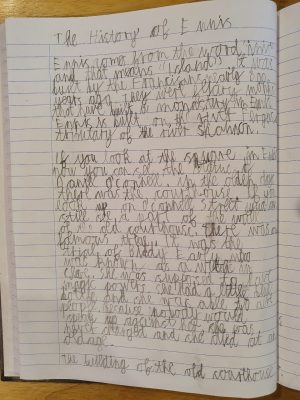 The History of Ennis
Ennis come from the word "Inis"
and that means Island. It was
built by the Franciscan family 800
years ago. They were
that have built a monastry in Ennis
Ennis is built on the river Fergus
tributary of the river Shannon.
If you look at the square in Ennis
now you can see the statue of
Daniel O'Connel. In the olden days
there was the courthouse. If you
look up O'Connell street you can
still see a part of the wall
of the old courthouse. There was a
famous trial. It was the
trial of Biddy Early who
was known as a witch in
Clare. She was supposed to have
magic powers. She had a little blue
bottle and she was able to cure
people because nobody would
speak up against her she was
never charged and she died at an
old age.
The building of the old courthouse